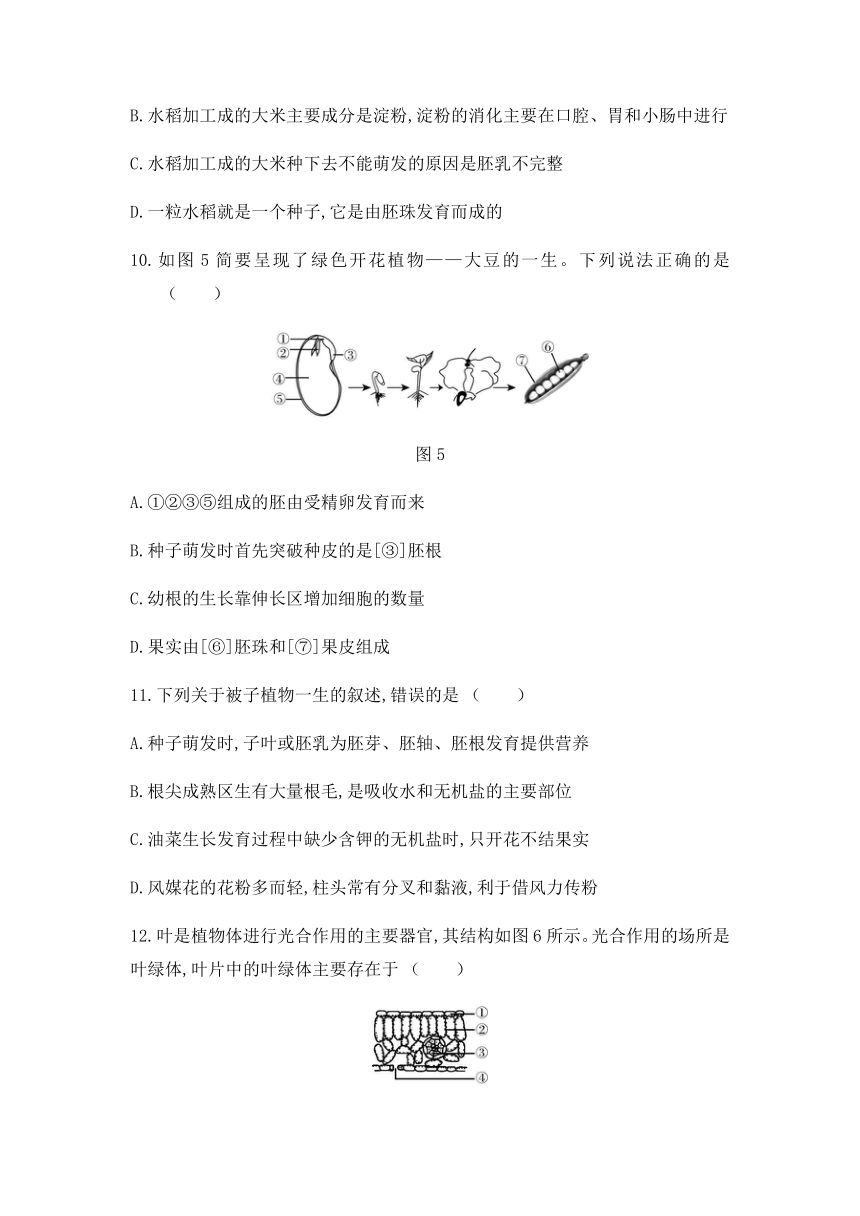 B.水稻加工成的大米主要成分是淀粉,淀粉的消化主要在口腔、胃和小肠中进行
C.水稻加工成的大米种下去不能萌发的原因是胚乳不完整
D.一粒水稻就是一个种子,它是由胚珠发育而成的
10.如图 5 简要呈现了绿色开花植物——大豆的一生。下列说法正确的是
(　　)
①
②
③
④
⑤
⑥
⑦
图 5
A.①②③⑤组成的胚由受精卵发育而来
B.种子萌发时首先突破种皮的是[③]胚根
C.幼根的生长靠伸长区增加细胞的数量
D.果实由[⑥]胚珠和[⑦]果皮组成
11.下列关于被子植物一生的叙述,错误的是 (　　)
A.种子萌发时,子叶或胚乳为胚芽、胚轴、胚根发育提供营养
B.根尖成熟区生有大量根毛,是吸收水和无机盐的主要部位
C.油菜生长发育过程中缺少含钾的无机盐时,只开花不结果实
D.风媒花的花粉多而轻,柱头常有分叉和黏液,利于借风力传粉
12.叶是植物体进行光合作用的主要器官,其结构如图 6 所示。光合作用的场所是
叶绿体,叶片中的叶绿体主要存在于 (　　)
①
②
③
④